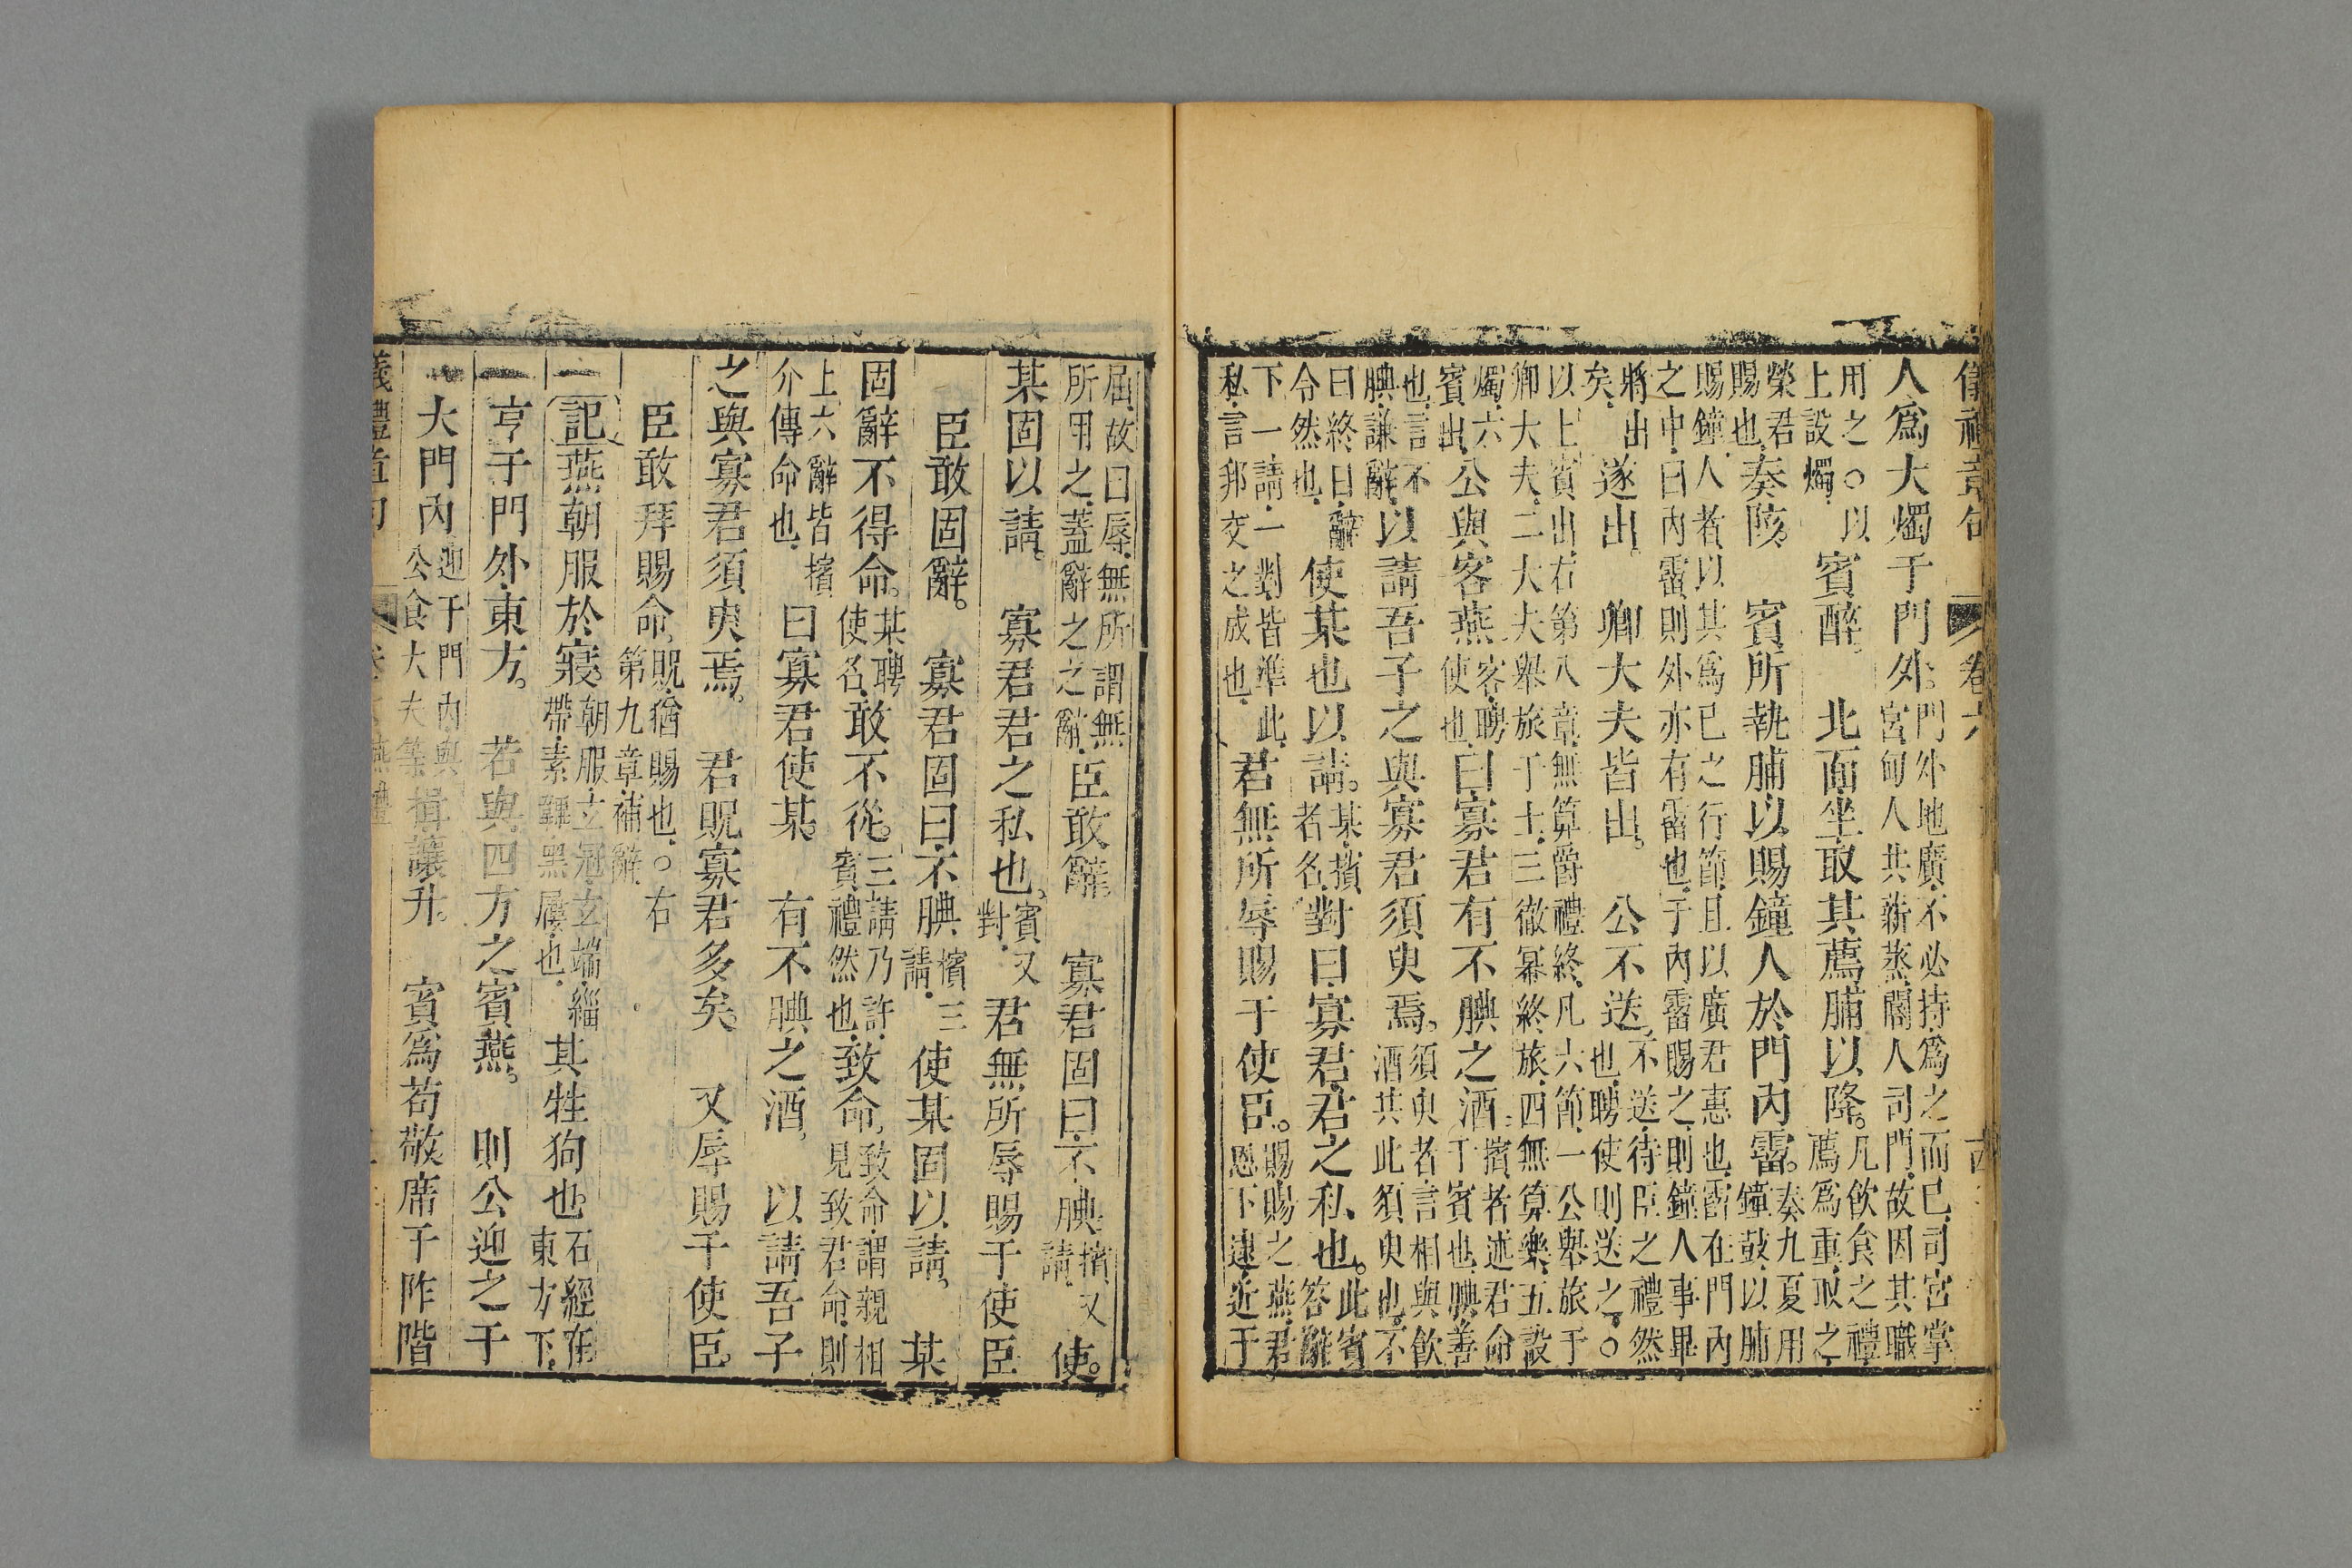 儀禮章句 卷六
人爲大燭于門外。門外地廣不必持爲之而已司宮掌宮甸人共薪蒸閽人司門故因其職
用之○以上設燭 賓醉。 北面坐取其薦脯以降。凡飲食之禮薦爲重取之
榮君賜也奏陔。 賓所執脯以賜鐘人於門內霤。奏九夏用鐘鼓以脯
賜鐘人者以其爲已之行節且以廣君惠也霤在門內之中曰內霤則外亦有霤也于內霤賜之則鐘人事畢
將出矣遂出。 卿大夫皆出。 公不送不送待臣之禮然也聘使則送之○
以上賓出右第八章無算爵禮終凡六節一公舉旅于卿大夫二大夫舉旅于士三徹冪終旅四無算樂五設
燭六賓出公與客燕客聘使也曰寡君有不腆之酒擯者述君命于賓也腆善
也言不腆謙辭以請吾子之與寡君須臾焉。須臾者言相與飲酒共此須臾也不
曰終日辭令然也 使某也以請。某擯者名對曰寡君君之私也。此賓答辭
下一請一對皆準此私言邦交之成也 君無所辱賜于使臣。賜賜之燕君恩下逮近于
屈故曰辱無所謂無所用之蓋辭之之辭臣敢辭 寡君固曰不腆擯又請使
某固以請。 寡君君之私也。賓又對 君無所辱賜于使臣
臣敢固辭。 寡君固曰不腆擯三請 使某固以請。 某
固辭不得命。某聘使名敢不從。三請乃許賓禮然也致命致命謂親相見致君命則
上六辭皆擯介傳命也 曰寡君使某 有不腆之酒 以請吾子
之與寡君須臾焉。 君貺寡君多矣 又辱賜于使臣
臣敢拜賜命貺猶賜也○右第九章補辭
記燕朝服於寢朝服玄冠玄端緇帶素韠黑屨也 其牲狗也石經在東方下
亨于門外東方。 若與四方之賓燕。 則公迎之于
大門內迎于門內與公食大夫等揖讓升。 賓爲苟敬席于阼階
儀禮章句 卷六 燕禮